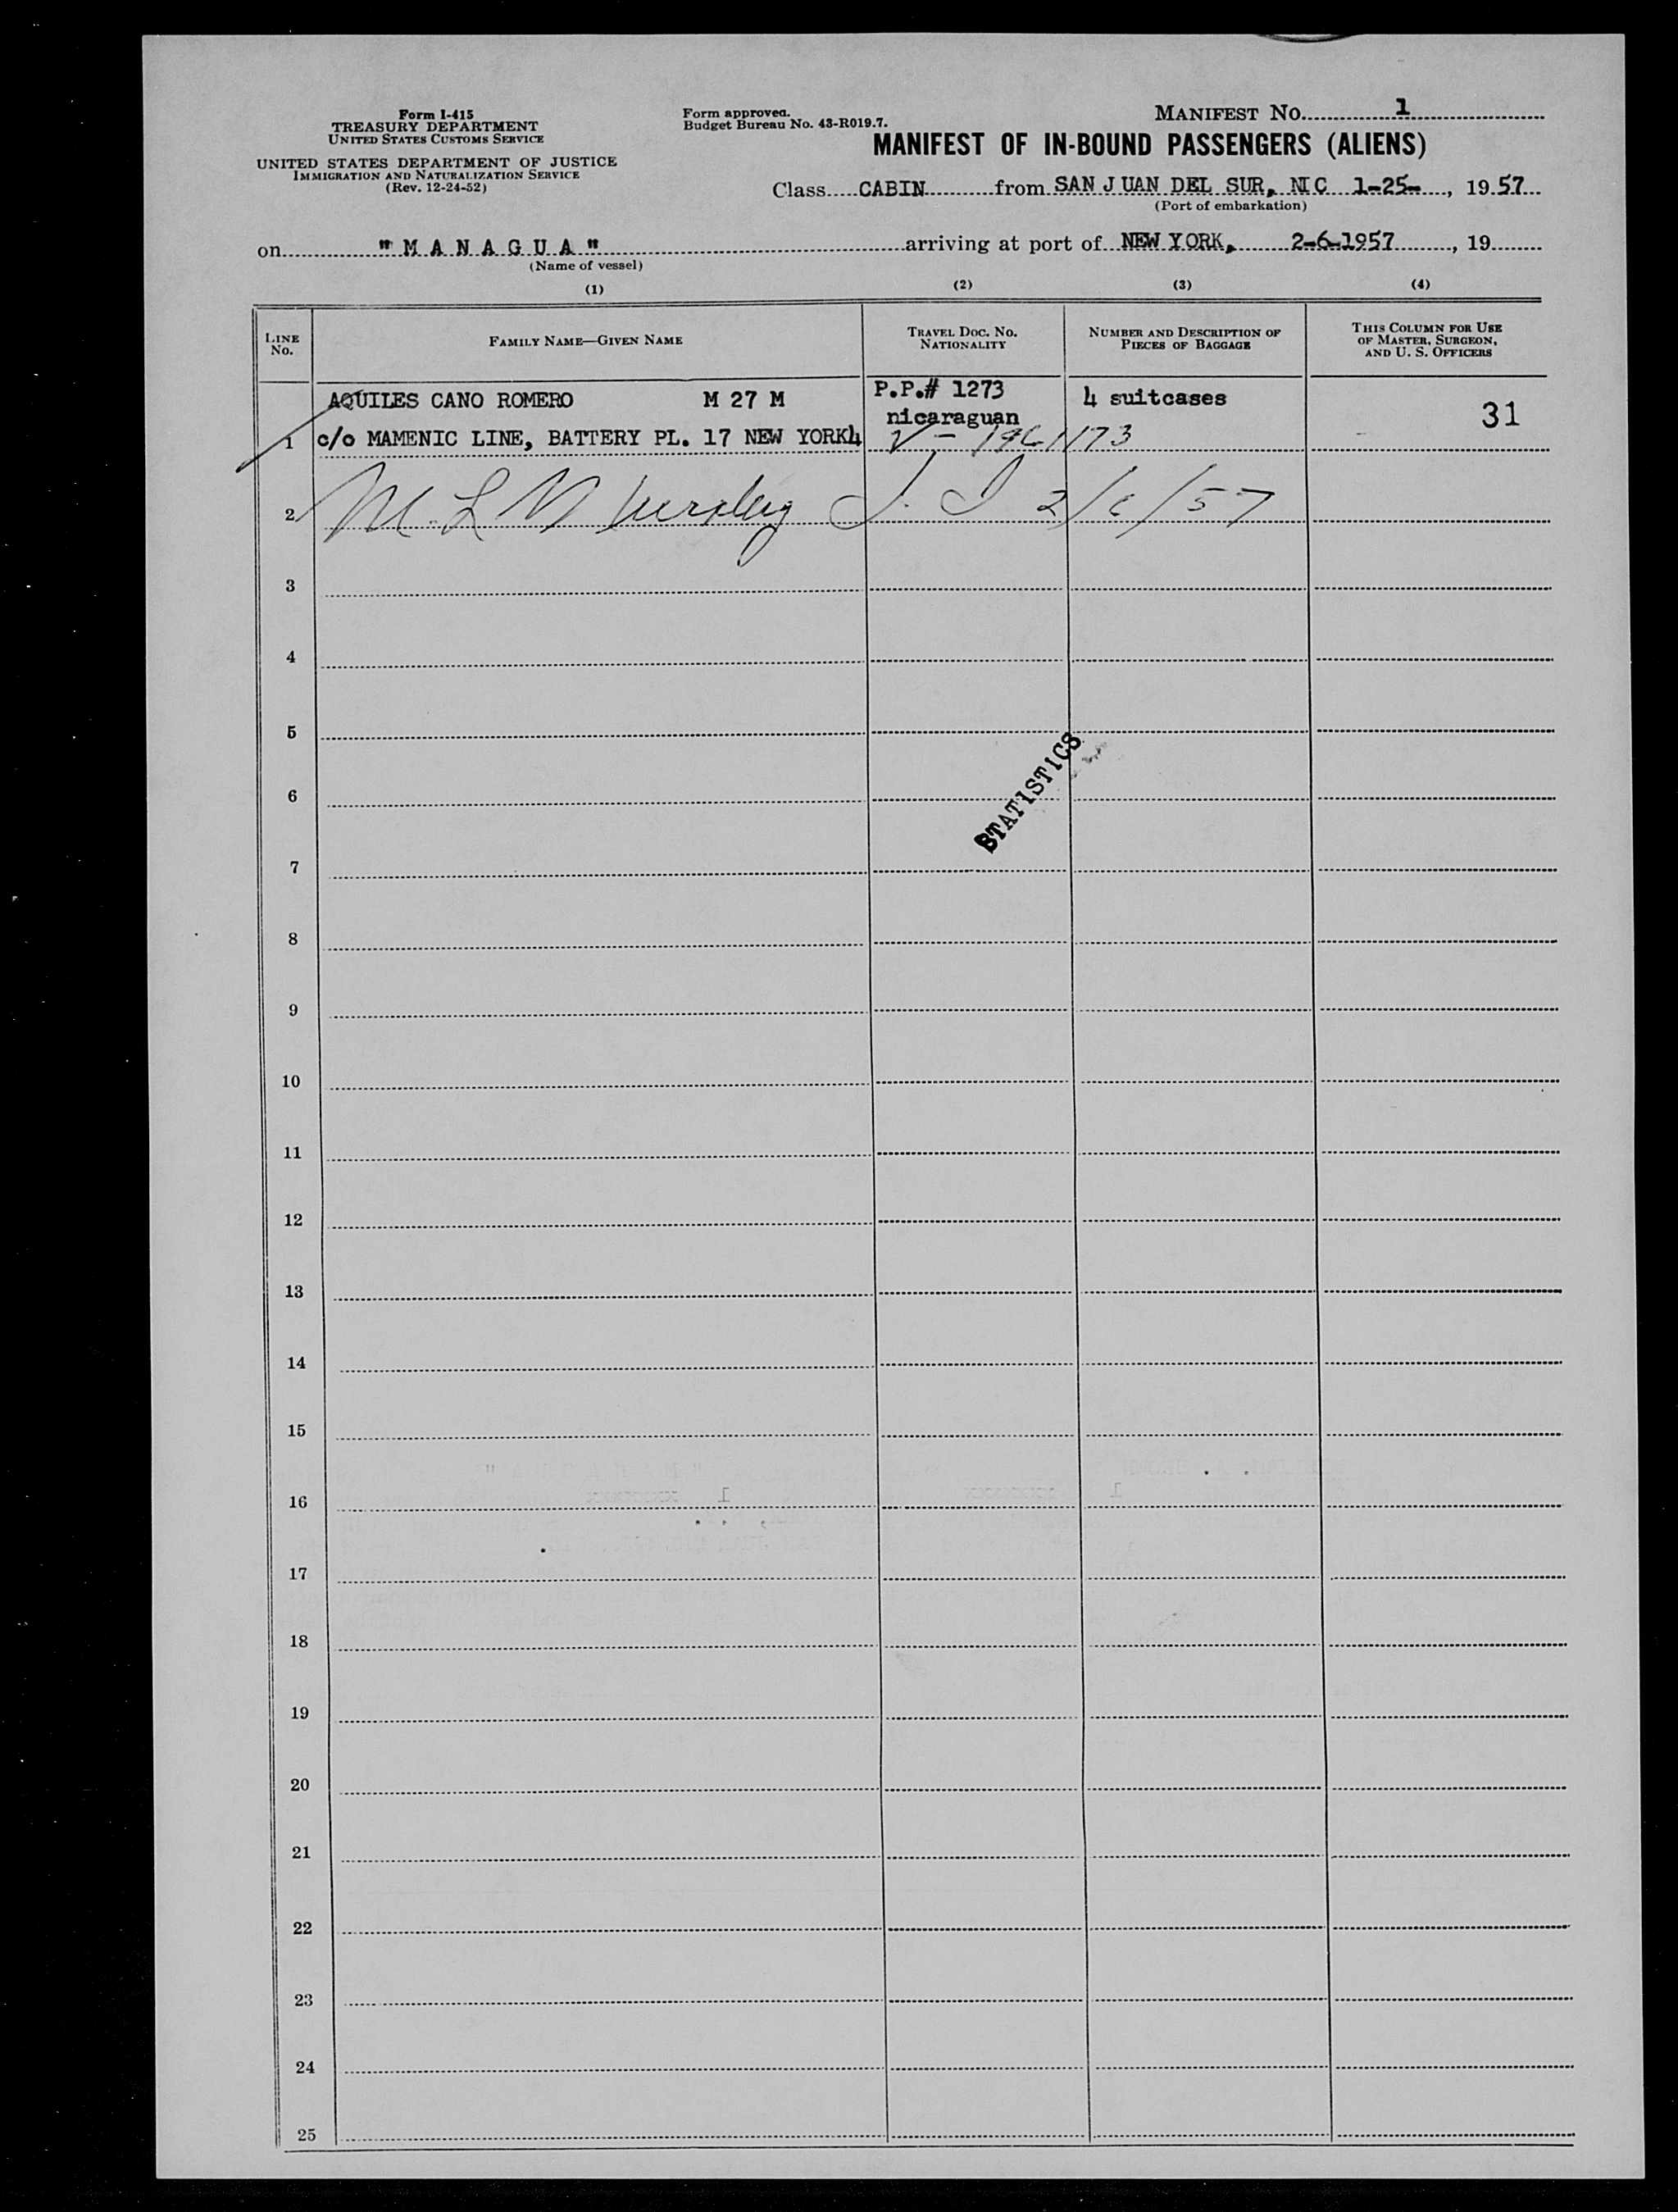 Form I-415
TREASURY DEPARTMENT
UNITED STATES CUSTOMS SERVICE
UNITED STATES DEPARTMENT OF JUSTICE
IMMIGRATION AND NATURALIZATION SERVICE
(Rev. 12-24-52)
Form approved.
Budget Bureau No. 43-R019.7.
MANIFEST NO. 1
MANIFEST OF IN-BOUND PASSENGERS (ALIENS)
Class CABIN from SAN JUAN DEL SUR, NIC 1-25-, 19 57
(Port of embarkation)
on "MANAGUA" arriving at port of NEW YORK, 2-6-1957, 19
(Name of vessel)
(1) (2) (3) (4)
LINE No.
FAMILY NAME—GIVEN NAME
TRAVEL DOC. NO. NATIONALITY
NUMBER AND DESCRIPTION OF PIECES OF BAGGAGE
THIS COLUMN FOR USE OF MASTER, SURGEON, AND U. S. OFFICERS
AQUILES CANO ROMERO M 27 M P.P.# 1273 4 suitcases 31
nicaraguan
1 c/o MAMENIC LINE, BATTERY PL. 17 NEW YORK4 V-
2 2/6/57
3
4
5
STATISTICS
6
7
8
9
10
11
12
13
14
15
16
17
18
19
20
21
22
23
24
25